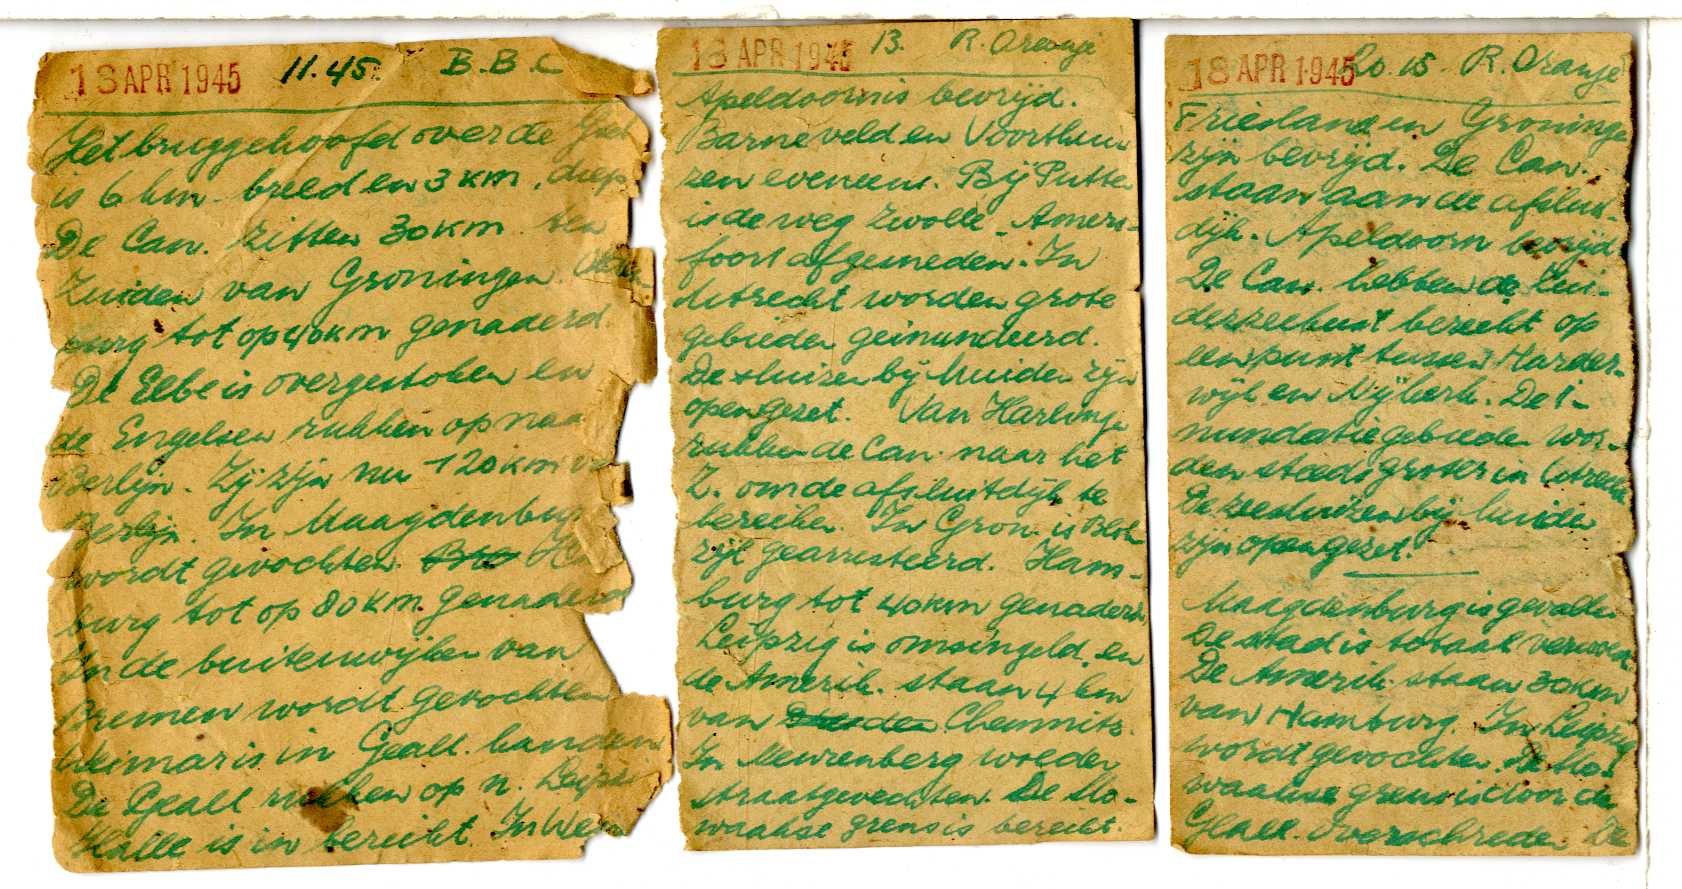 13 APR 1945 11.45 B.B.C
Het bruggehoofd over de
is 6 km breed en 3 km diep
De Can. zitten 30 km ten
Zuiden van Groningen.
burg tot op 40 km genaderd
De Elbe is overgestoken en
de Engelsen rukken op naa
Berlijn. Zij zijn nu 120 km v
Berlijn. In Maagdenburg
wordt gevochten. Ha
burg tot op 80 km genaderd
In de buitenwijken van
Bremen wordt gevochten
Weimar is in Geall. handen
De Geall rukken op n. Leipzi
Halle is in bereikt. In We
18 APR 1945 13. R. Oranje
Apeldoorn is bevrijd.
Barneveld en Voorthui
zen eveneens. Bij Putte
is de weg Zwolle - Amers-
foort afgesneden. In
Utrecht worden grote
gebieden geinundeerd.
De sluizen bij Muiden zijn
open gezet. Van Harlinge
rukken de Can. naar het
Z. om de afsluitdijk te
bereiken. In Gron. is Blok
zijl gearresteerd. Ham-
burg tot 40 km genaderd
Leipzig is omsingeld en
de Amerik. staan 4 km
van Chemnitz.
In Neurenberg woeden
straatgevechten. De Slo-
waakse grens is bereikt.
18 APR 1945 20.15 R. Oranje
Friesland en Groninge
zijn bevrijd. De Can.
staan aan de afslui-
dijk. Apeldoorn bevrijd
De Can. hebben de Zui-
derzeekust bereikt op
een punt tussen Harder-
wijk en Nijkerk. De i-
nundatiegebieden wor-
den steeds groter in Utrecht
De zeesluizen bij Muiden
zijn open gezet.
Maagdenburg is gevallen
De stad is totaal verwoest
De Amerik. staan 30 km
van Hamburg. In Leipzig
wordt gevochten. De Slo
waakse grens is door de
Geall. overschreden. De